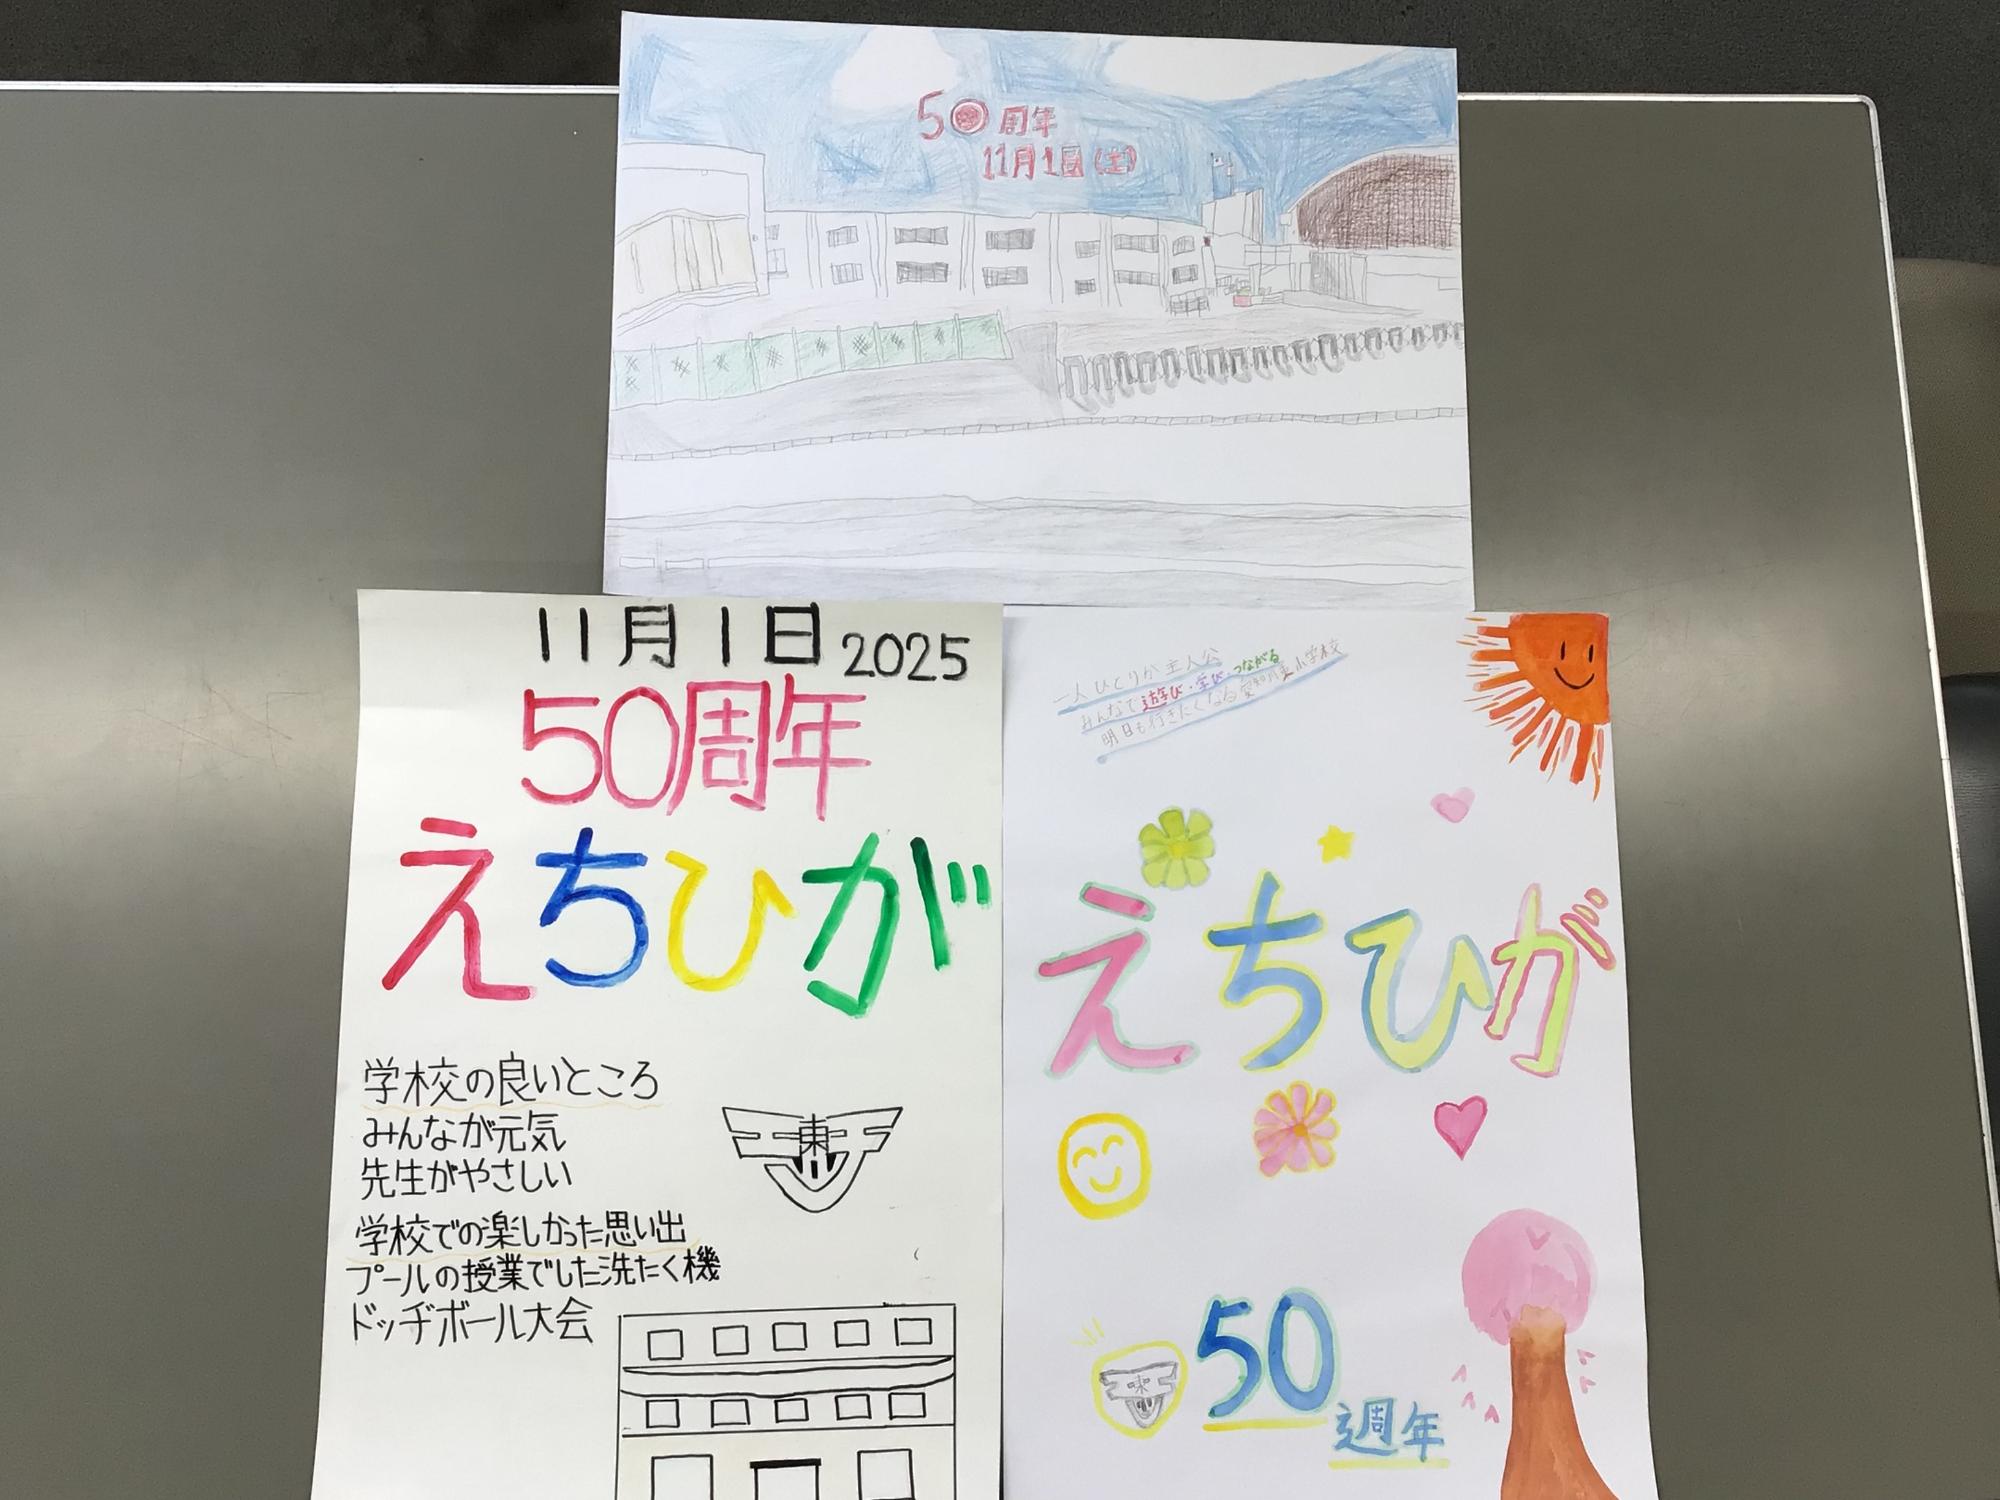 50周年
11月1日(土)
11月1日 2025
50周年
えちひが
学校の良いところ
みんなが元気
先生がやさしい
東
学校での楽しかった思い出
プールの授業でした洗たく機
ドッヂボール大会
一人ひとりが主人公
みんなで遊び・学び・つながる
明日も行きたくなる愛知川東小学校
えちひが
東
50
週年